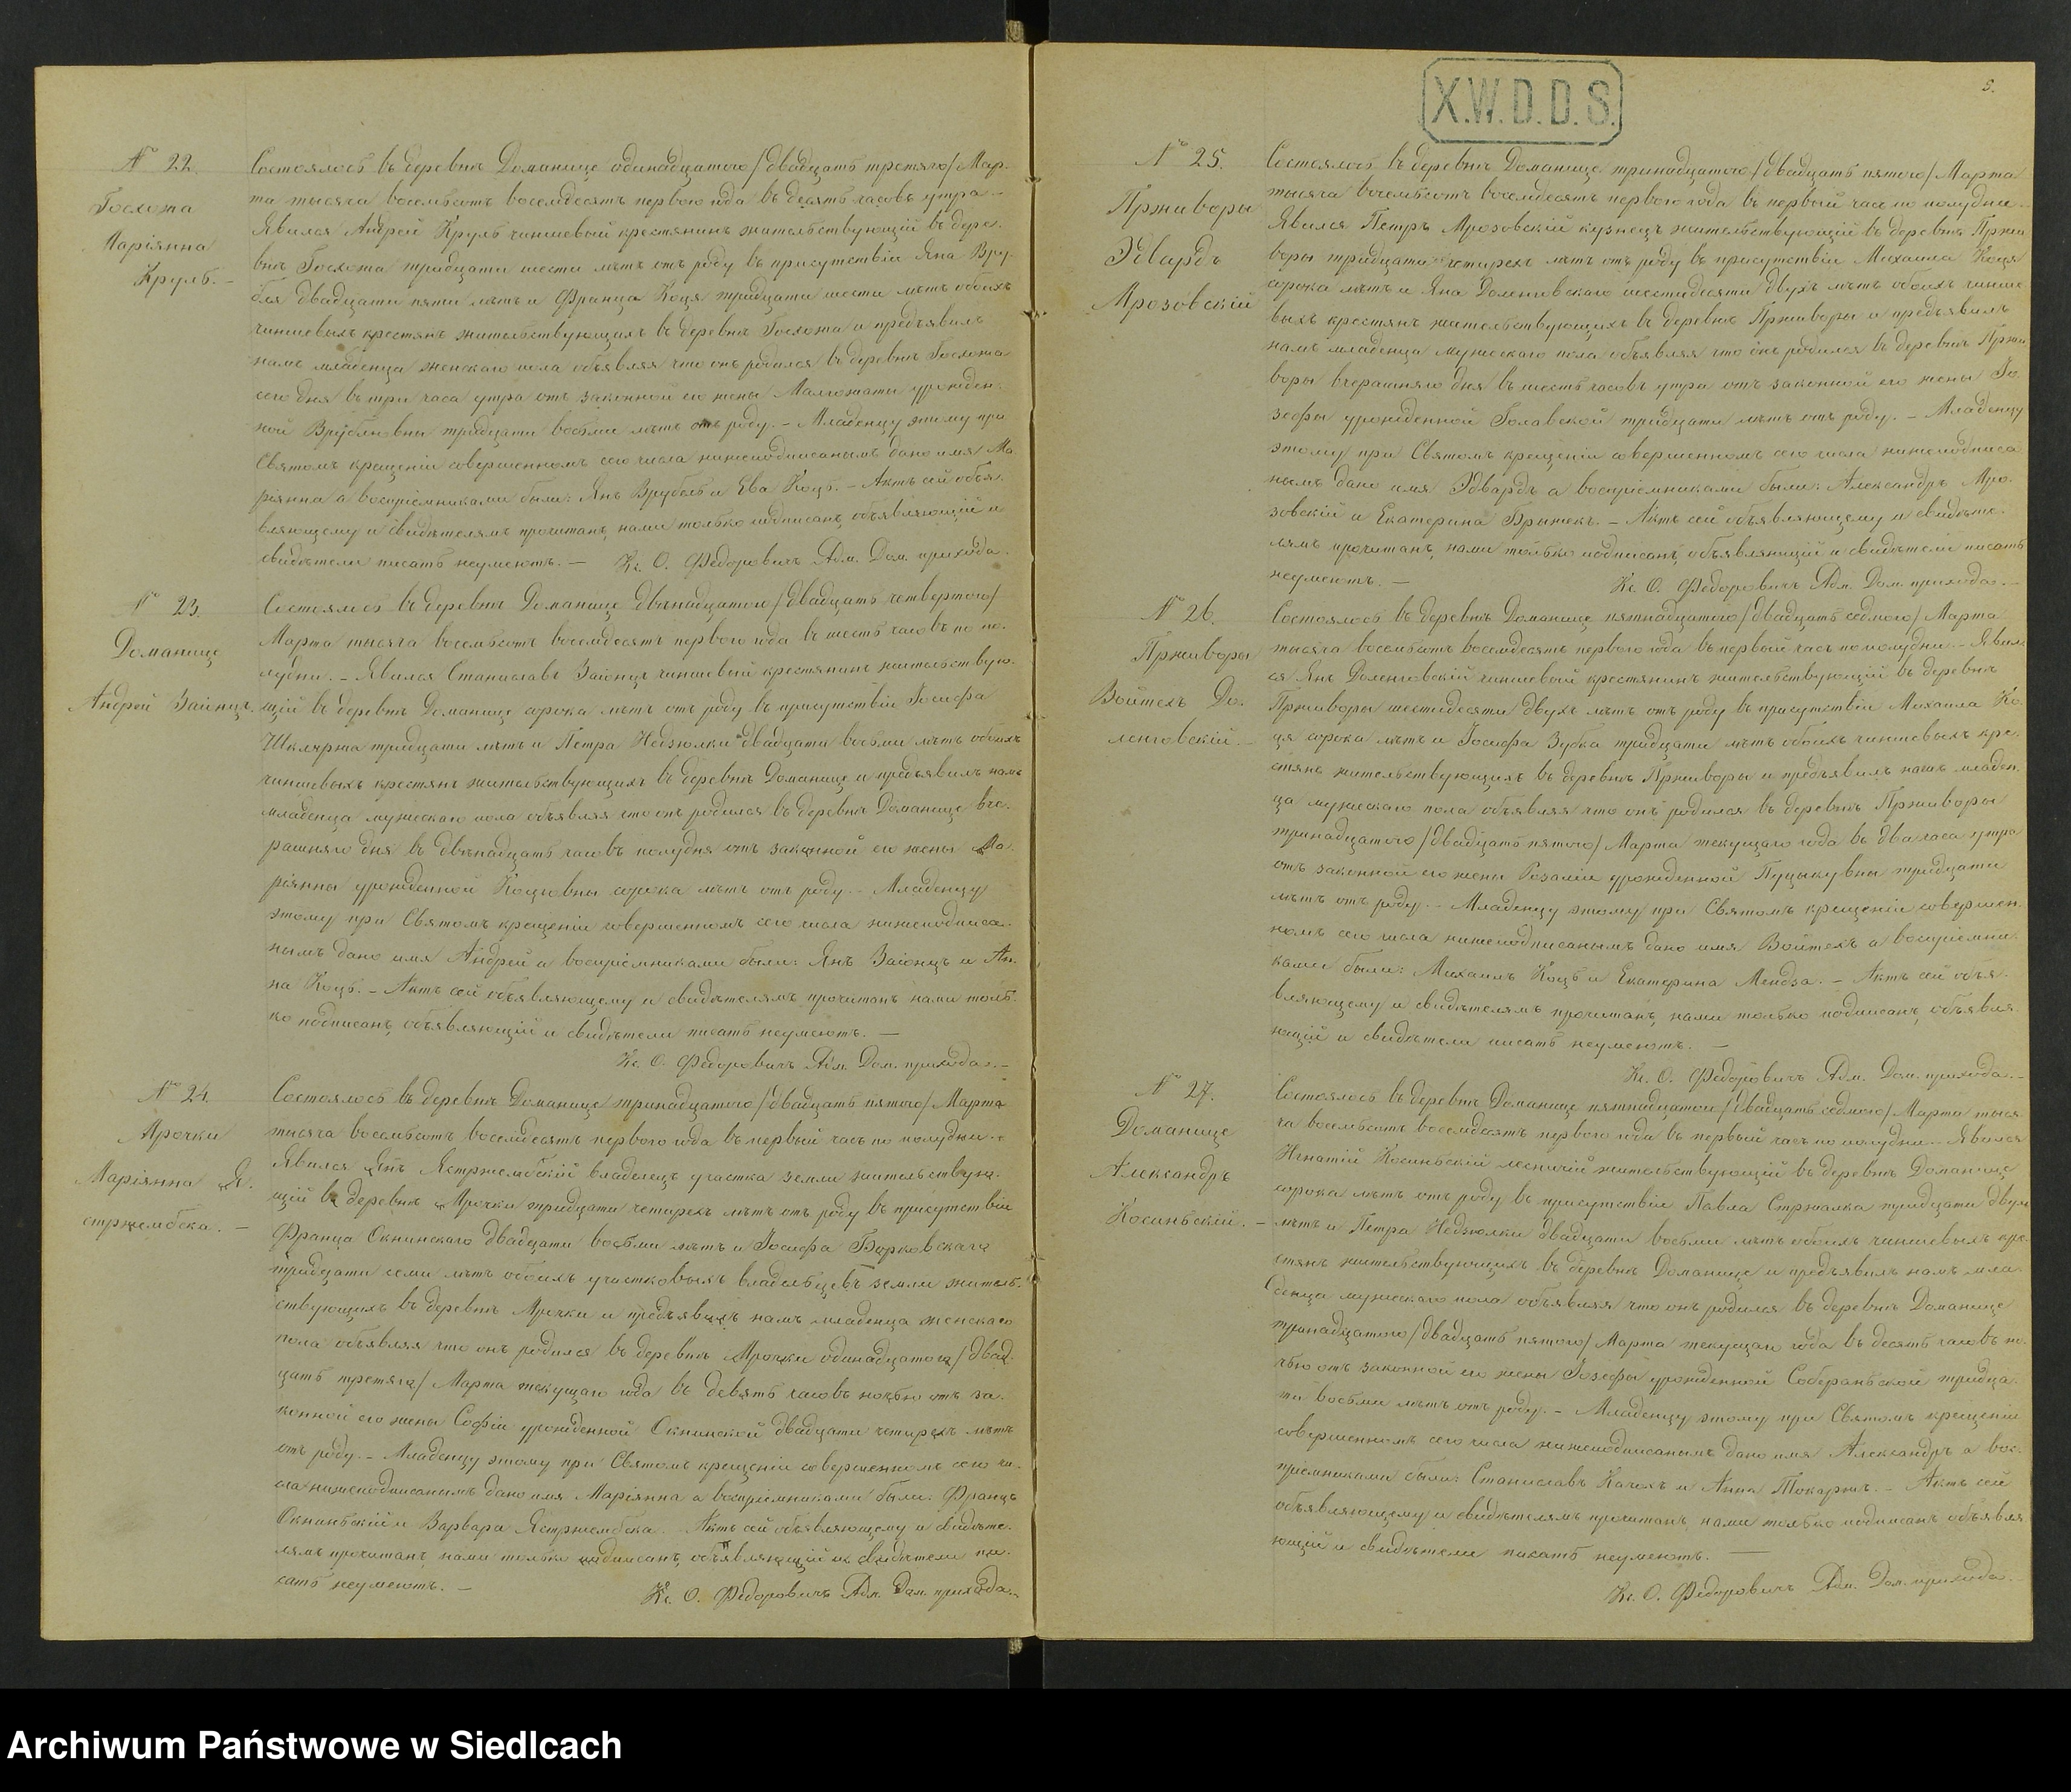 № 22.
Госхота
Маріянна
Круль. –
Состоялось въ деревнѣ Доманице одинадцатого /двадцать третяго/ Мар-
та тысяча восемьсотъ восемдесять первого года въ десять часовъ утра –
Явился Андрей Круль чиншевой крестянинъ жительствующій въ дере-
внѣ Госхота тридцати шести лѣтъ отъ роду въ присутствіи Яна Вру-
бля двадцати пяти лѣтъ и Франца Коця тридцати шести лѣтъ обоихъ
чиншевыхъ крестянъ жительствующихъ въ деревнѣ Госхота и предъявилъ
намъ младенца женскаго пола объявляя что онъ родился въ деревнѣ Госхота
сего дня въ три часа утра отъ законной его жены Малгожаты урожден-
ной Врублювны тридцати восьми лѣтъ отъ роду. – Младенцу этому при
Святомъ крещеніи совершенномъ сего числа нижеподписанымъ дано имя Ма-
ріянна а воспріемниками были: Янъ Врубель и Ева Коць. – Актъ сей объя-
вляющему и свидѣтелямъ прочитанъ, нами только подписанъ, объявляющій и
свидѣтели писать неумеютъ. – Кс. О. Федоровичъ Адм. Дом. прихода.
№ 23.
Доманице
Андрей Заіонцъ.
Состоялось въ деревнѣ Доманице двѣнадцатого /двадцать четвертого/
Марта тысяча восемьсотъ восемдесятъ первого года въ шесть часовъ по по-
лудни. – Явился Станиславъ Заіонцъ чиншевый крестянинъ жительствую-
щій въ деревнѣ Доманице сорока лѣтъ отъ роду въ присутствіи Іосифа
Шкляржа тридцати лѣтъ и Петра Недзюлки двадцати восьми лѣтъ обоихъ
чиншевыхъ крестянъ жительствующихъ въ деревнѣ Доманице и предъявилъ намъ
младенца мужескаго пола объявляя что онъ родился въ деревнѣ Доманице вче-
рашняго дня въ двѣнадцать часовъ полудня отъ законной его жены Ма-
ріянны урожденной Коцювны сорока лѣтъ отъ роду. – Младенцу
этому при Святомъ крещеніи совершенномъ сего числа нижеподписа-
нымъ дано имя Андрей а воспріемниками были: Янъ Заіонцъ и Ан-
на Коць. – Актъ сей объявляющему и свидѣтелямъ прочитанъ нами толь-
ко подписанъ, объявляющій и свидѣтели писать неумеютъ. –
Кс. О. Федоровичъ Адм. Дом. прихода. –
№ 24.
Мрочки
Маріянна Я-
стржембска. –
Состоялось въ деревнѣ Доманице тринадцатого /двадцать пятого/ Марта
тысяча восемьсотъ восемдесятъ первого года въ первый часъ по полудни. –
Явился Янъ Ястржембскій владелецъ участка земли жительствую-
щій въ деревнѣ Мрочки тридцати четирехъ лѣтъ отъ роду въ присутствіи
Франца Скнинскаго двадцати восьми лѣтъ и Іосифа Борковскаго
тридцати семи лѣтъ обоихъ участковыхъ владельцевъ земли житель-
ствующихъ въ деревнѣ Мрочки и предъявилъ намъ младенца женскаго
пола объявляя что онъ родился въ деревнѣ Мрочки одинадцатого /двад-
цать третяго/ Марта текущаго года въ девять часовъ ночью отъ за-
конной его жены Софіи урожденной Скнинской двадцати четирехъ лѣтъ
отъ роду. – Младенцу этому при Святомъ крещеніи совершенномъ сего чи-
сла нижеподписанымъ дано имя Маріянна а воспріемниками были: Францъ
Скнинскій и Варвара Ястржембска. Актъ сей объявляющему и свидѣте-
лямъ прочитанъ, нами только подписанъ, объявляющій и свидѣтели пи-
сать неумеютъ. – Кс. О. Федоровичъ Адм. Дом. прихода. –
X.W.D.D.S.
5.
№ 25.
Прживоры
Эдвардъ
Мрозовскій
Состоялось въ деревнѣ Доманице тринадцатого /двадцать пятого/ Марта
тысяча восемьсотъ восемдесятъ первого года въ первый часъ по полудни.
Явился Петръ Мрозовскій кузнецъ жительствующій въ деревнѣ Пржи-
воры тридцати четирехъ лѣтъ отъ роду въ присутствіи Михаила Коця
сорока лѣтъ и Яна Доленговскаго шестидесяти двухъ лѣтъ обоихъ чинше-
выхъ крестянъ жительствующихъ въ деревнѣ Прживоры и предъявилъ
намъ младенца мужескаго пола объявляя что онъ родился въ деревнѣ Пржи-
воры вчерашняго дня въ шесть часовъ утра отъ законной его жены Іо-
зефы урожденной Голавской тридцати лѣтъ отъ роду. – Младенцу
этому при Святомъ крещеніи совершенномъ сего числа нижеподписа-
нымъ дано имя Эдвардъ а воспріемниками были: Александръ Мро-
зовскій и Екатерина Брытекъ. – Актъ сей объявляющему и свидѣте-
лямъ прочитанъ, нами только подписанъ, объявляющій и свидѣтели писать
неумеютъ. – Кс. О. Федоровичъ Адм. Дом. прихода. –
№ 26.
Прживоры
Войтехъ До-
ленговскій. –
Состоялось въ деревнѣ Доманице пятнадцатого /двадцать седмого/ Марта
тысяча восемьсотъ восемдесятъ первого года въ первый часъ по полудни. – Явил-
ся Янъ Доленговскій чиншевой крестянинъ жительствующій въ деревнѣ
Прживоры шестидесяти двухъ лѣтъ отъ роду въ присутствіи Михаила Ко-
ця сорока лѣтъ и Іосифа Зубка тридцати лѣтъ обоихъ чиншевыхъ кре-
стянъ жительствующихъ въ деревнѣ Прживоры и предъявилъ намъ младен-
ца мужескаго пола объявляя что онъ родился въ деревнѣ Прживоры
тринадцатого /двадцать пятого/ Марта текущаго года въ два часа утра
отъ законной его жены Розаліи урожденной Пуцыкувны тридцати
лѣтъ отъ роду. – Младенцу этому при Святомъ крещеніи совершен-
номъ сего числа нижеподписанымъ дано имя Войтехъ а воспріемни-
ками были: Михаилъ Коць и Екатерина Мендза. – Актъ сей объя-
вляющему и свидѣтелямъ прочитанъ, нами только подписанъ, объявля-
ющій и свидѣтели писать неумеютъ. –
Кс. О. Федоровичъ Адм. Дом. прихода. –
№ 27.
Доманице
Александръ
Косиньскій. –
Состоялось въ деревнѣ Доманице пятнадцатого /двадцать седмого/ Марта тыся-
ча восемьсотъ восемдесятъ первого года въ первый часъ по полудни. – Явился
Игнатій Косиньскій лесничій жительствующій въ деревнѣ Доманице
сорока лѣтъ отъ роду въ присутствіи Павла Стржалка тридцати двухъ
лѣтъ и Петра Недзюлки двадцати восьми лѣтъ обоихъ чиншевыхъ кре-
стянъ жительствующихъ въ деревнѣ Доманице и предъявилъ намъ мла-
денца мужескаго пола объявляя что онъ родился въ деревнѣ Доманице
тринадцатого /двадцать пятого/ Марта текущаго года въ десять часовъ но-
чью отъ законной его жены Іозефы урожденной Соберанской тридца-
ти восьми лѣтъ отъ роду. – Младенцу этому при Святомъ крещеніи
совершенномъ сего числа нижеподписанымъ дано имя Александръ а вос-
пріемниками были: Станиславъ Качохъ и Анна Токаржъ. – Актъ сей
объявляющему и свидѣтелямъ прочитанъ, нами только подписанъ объявля-
ющій и свидѣтели писать неумеютъ. –
Кс. О. Федоровичъ Адм. Дом. прихода. –
Archiwum Państwowe w Siedlcach